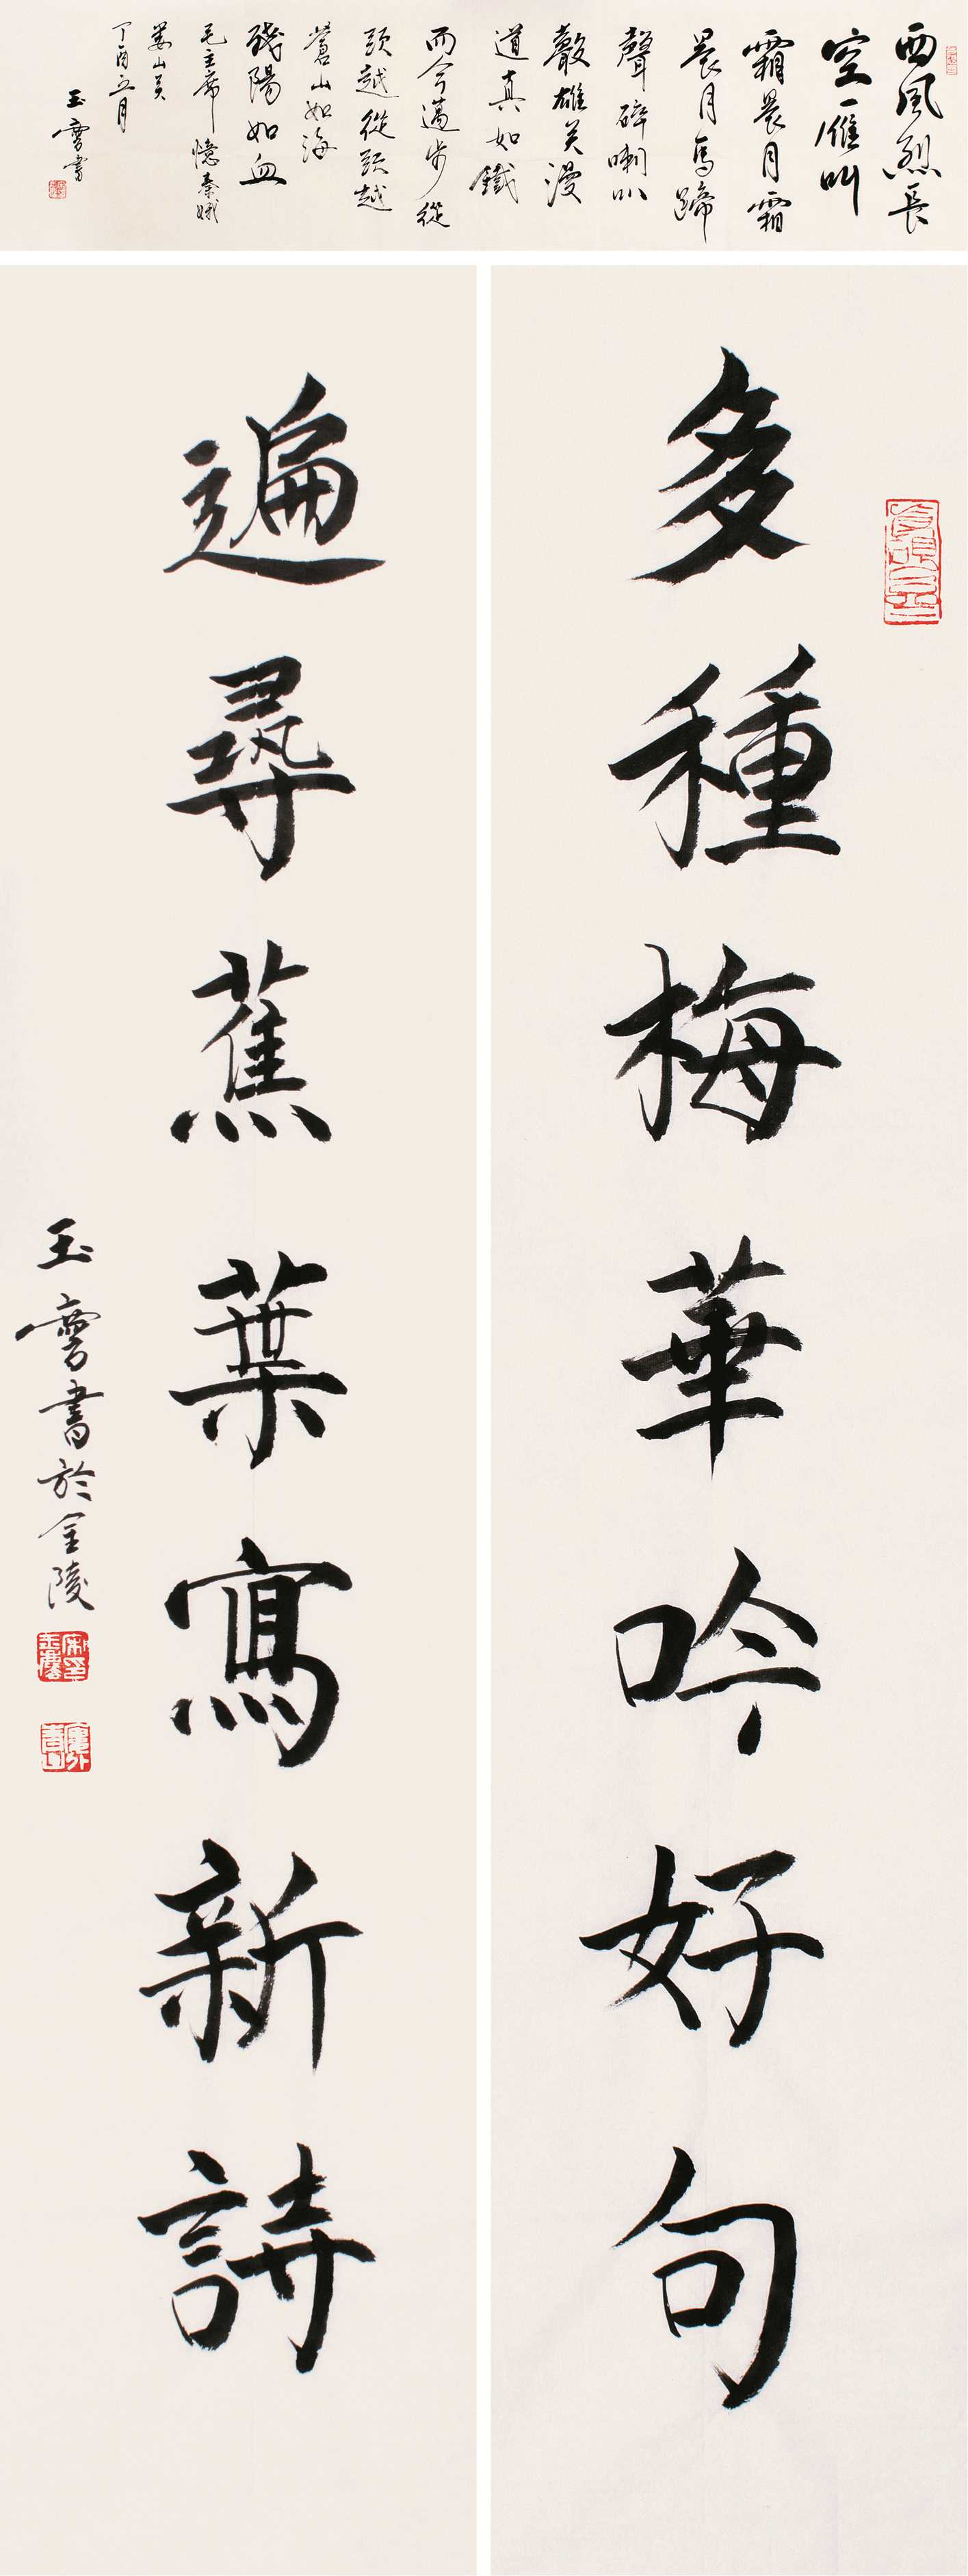 西風烈長
空雁叫
霜晨月霜
晨月馬蹄
聲碎喇叭
聲雄关漫
道真如鐵
而今邁步從
頭越從頭越
蒼山如海
殘陽如血
毛主席憶秦娥
婁山关
丁酉五月
玉書
多種梅華吟好句
遍尋蕉葉寫新詩
玉書於金陵